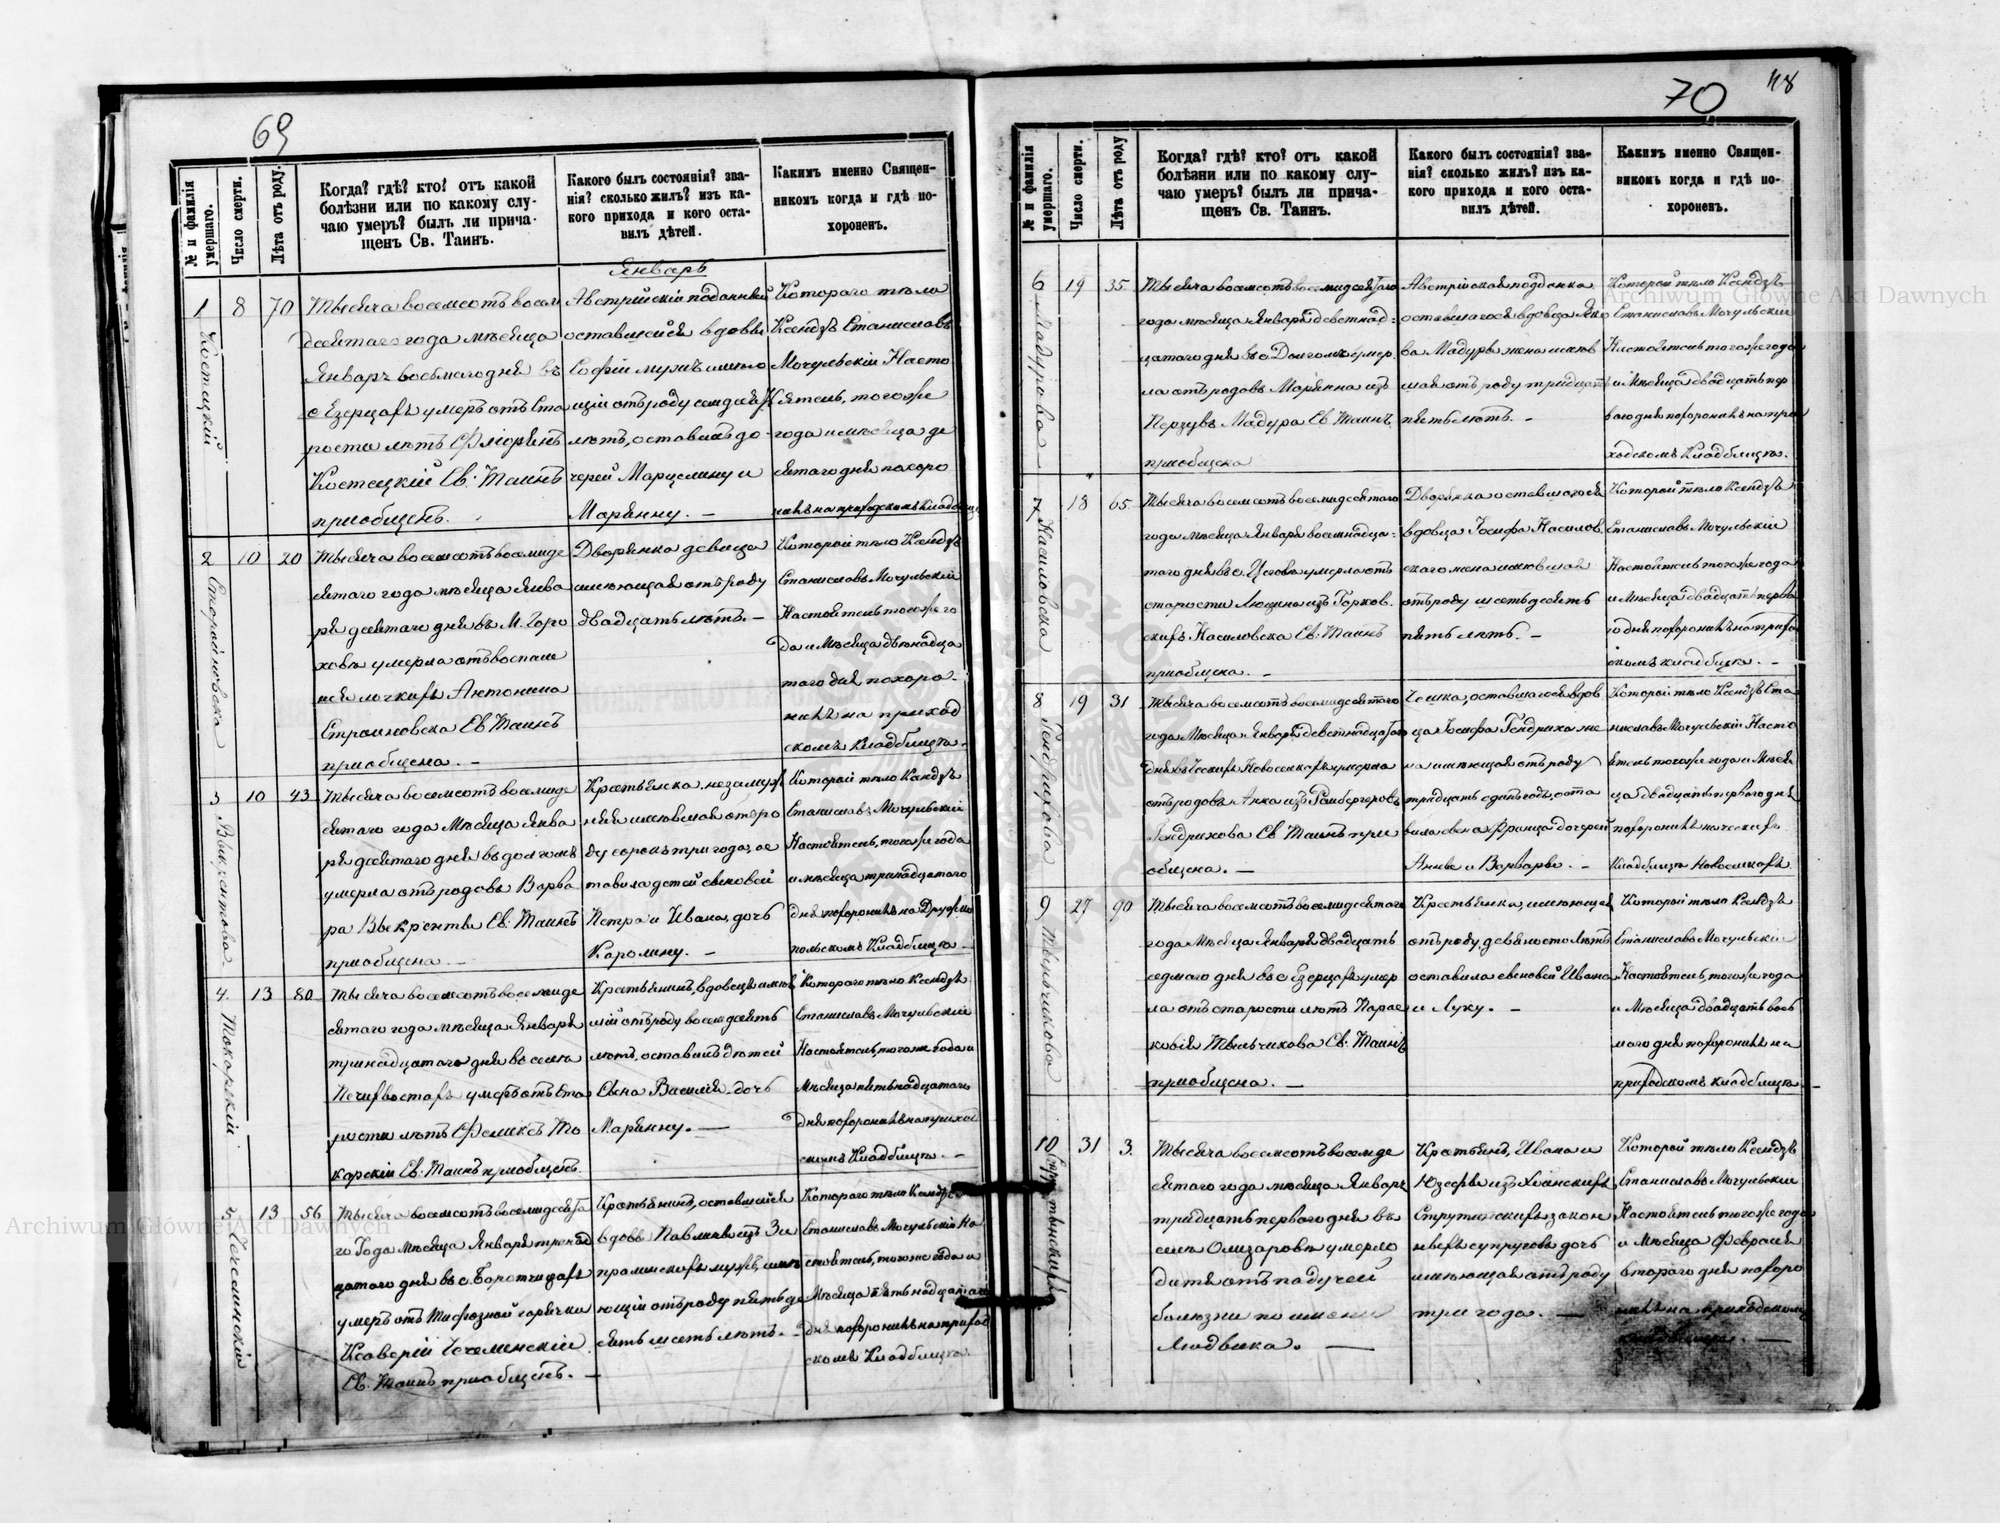 69
№ и фамилія умершаго.
Число смерти.
Лѣта отъ роду.
Когда? гдѣ? кто? отъ какой
болѣзни или по какому слу-
чаю умеръ? былъ ли прича-
щенъ Св. Таинъ.
Какого былъ состоянія? зва-
нія? сколько жилъ? изъ ка-
кого прихода и кого оста-
вилъ дѣтей.
Какимъ именно Священ-
никомъ когда и гдѣ по-
хороненъ.
Январь
1
Костецкій
8
70
Тысяча восемсотъ восем
десятаго года мѣсяца
Январь восьмаго дня въ
с Езерцахъ умеръ отъ ста
рости лѣтъ Флоріянъ
Костецкій Св. Таинъ
приобщенъ.
Австрійскій подданный
оставшейся вдовы
Софіи мужъ имѣю
щій отъ роду семдесятъ
лѣтъ, оставилъ до-
черей Марцелину и
Марянну. —
Котораго тѣло
Ксендзъ Станиславъ
Мочульскій Насто
ятель, того же
года и мѣсяца де
сятаго дня похоро
нилъ на приходскомъ кладбищѣ
2
10
20
Тысяча восемсотъ восемде
сятаго года мѣсяца Янва
ря десятаго дня въ М. Горо
ховѣ умерла отъ воспале
нія легкихъ Антонина
Строиновска Св Таинъ
приобщена. —
Дворянка девица
имѣющая отъ роду
двадцать лѣтъ. —
Которой тѣло Ксендзъ
Станиславъ Мочульскій
Настоятель того же го
да и Мѣсяца двѣнадца
таго дня похоро-
нилъ на приход
скомъ кладбищѣ.
3
10
43
Тысяча восемсотъ восемде
сятаго года Мѣсяца Янва
ря десятаго дня въ долгомъ
умерла отъ родовъ Варва
ра Св. Таинъ
приобщена
Крестьянка, незамуж
няя имѣвшая отъ ро
ду сорокъ три года, ос
тавила детей сыновей
Петра и Ивана, дочь
Каролину. —
Которой тѣло Ксендзъ
Станиславъ Мочульскій
Настоятель, того же года
и мѣсяца тринадцатаго
дня похоронилъ на Друже
польскомъ Кладбищѣ —
4.
Токарскій
13
80
Тысяча восемсотъ восемде
сятаго года мѣсяца Января
тринадцатаго дня во селѣ
Печифвостахъ умеръ отъ ста
рости лѣтъ Феликсъ То
карскій Св. Таинъ приобщенъ
Крестьянинъ, вдовецъ имѣв
шій отъ роду восемдесятъ
лѣтъ, оставилъ дѣтей
Сына Василія, дочь
Марянну. —
Котораго тѣло Ксендзъ
Станиславъ Мочульскій
Настоятель, того же года и
Мѣсяца пятьнадцатаго
дня похоронилъ на приход
скомъ Кладбищѣ. —
5
13
56
Тысяча восемсотъ восемдесята
го Года Мѣсяца Января тринад
цатаго дня въ с. Боротчицахъ
умеръ отъ Тифозной горячки
Ксаверій
Св. Таинъ приобщенъ. —
Крестьянинъ, оставшейся
вдовы Павлины изъ За
мужъ, имѣ
ющій отъ роду пятьде
сятъ шесть лѣтъ. —
Котораго тѣло Ксендзъ
Станиславъ Мочульскій На
стоятель, того же года и
Мѣсяца пятьнадцатаго
дня похоронилъ на приход
скомъ Кладбищѣ.
70
48
№ и фамилія умершаго.
Число смерти.
Лѣта отъ роду
Когда? гдѣ? кто? отъ какой
болѣзни или по какому слу-
чаю умеръ? былъ ли прича-
щенъ Св. Таинъ.
Какого былъ состоянія? зва-
нія? сколько жилъ? изъ ка-
кого прихода и кого оста-
вилъ дѣтей.
Какимъ именно Священ-
никомъ когда и гдѣ по-
хороненъ.
6
Мадурова
19
35.
Тысяча восемсотъ восемидесятаго
года мѣсяца Января девятнад-
цатаго дня въ с Долгомъ умер
ла отъ родовъ Марянна изъ
Мадура Св Таинъ
приобщена
Австрійская подданка
оставшагося вдовца Яко
ва Мадуры жена имѣв
шая отъ роду тридцать
пять лѣтъ. —
Которой тѣло Ксендзъ
Станиславъ Мочульскій
Настоятель того же года
и Мѣсяца двадцать пер
ваго дня похоронилъ на при
ходскомъ Кладбищѣ.
7
Насиловска
18
65
Тысяча восемсотъ восемидесятаго
года мѣсяца Января восемнадца-
таго дня въ с. умерла отъ
старости изъ Горков
скихъ Насиловска Св. Таинъ
приобщена. —
Дворянка оставшагося
вдовца Іосифа Насилов
скаго жена имѣвшая
отъ роду шестьдесятъ
пять лѣтъ. —
Которой тѣло Ксендзъ
Станиславъ Мочульскій
Настоятель того же года
и Мѣсяца двадцать перва
го дня похоронилъ на прихо
дскомъ кладбищѣ. —
8
Гендрихова
19
31
Тысяча восемсотъ восемидесятаго
года Мѣсяца Января девятнадцатаго
дня въ Ческихъ Новоселкахъ умерла
отъ родовъ Анна изъ Гамбергеровъ
Гендрихова Св Таинъ при
общена. —
Чешка, оставшагося вдов
ца Іосифа Гендриха же
на имѣющая отъ роду
тридцать одинъ годъ, оста
вила сына Франца дочерей
Анны и Варвары. —
Которой тѣло Ксендзъ Ста
ниславъ Мочульскій Насто
ятель того же года и Мѣся
ца двадцать перваго дня
похоронилъ на ческихъ
Кладбищѣ Новоселкахъ
9
27
90
Тысяча восемсотъ восемидесятаго
года Мѣсяца Января двадцать
седмаго дня въ с Езерцахъ умер
ла отъ старости лѣтъ Парас
ковія Св. Таинъ
приобщена. —
Крестьянка, имѣющая
отъ роду девяносто лѣтъ
оставила сыновей Ивана
и Луку. —
Которой тѣло Ксендзъ
Станиславъ Мочульскій
Настоятель, того же года
и Мѣсяца двадцать вось
маго дня похоронилъ на
приходскомъ кладбищѣ —
10
31
3.
Тысяча восемсотъ восемде
сятаго года мѣсяца Январь
тридцать перваго дня въ
селѣ Олизаровѣ умерло
дитя отъ падучей
болѣзни по имени
Людвика. —
Крестьянъ, Ивана и
Юзефы изъ
Струтинскихъ закон
ныхъ супруговъ дочь
имѣющая отъ роду
три года. —
Которой тѣло Ксендзъ
Станиславъ Мочульскій
Настоятель того же года
и Мѣсяца Февраля
втораго дня похоро
нилъ на приходскомъ
кладбищѣ. —
Archiwum Główne Akt Dawnych
Archiwum Główne Akt Dawnych